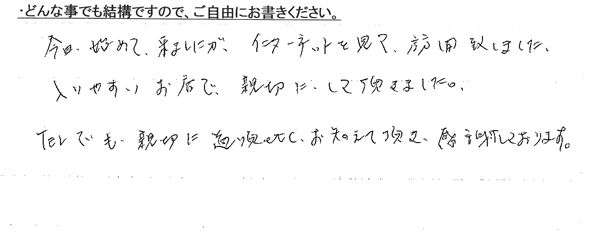 ・どんな事でも結構ですので、ご自由にお書きください。
今日、始めて、来ましたが、インターネットを見て、訪問致しました。
入りやすいお店で、親切にして頂きました。
TELでも、親切に道順など、お教えて頂き、感謝しております。